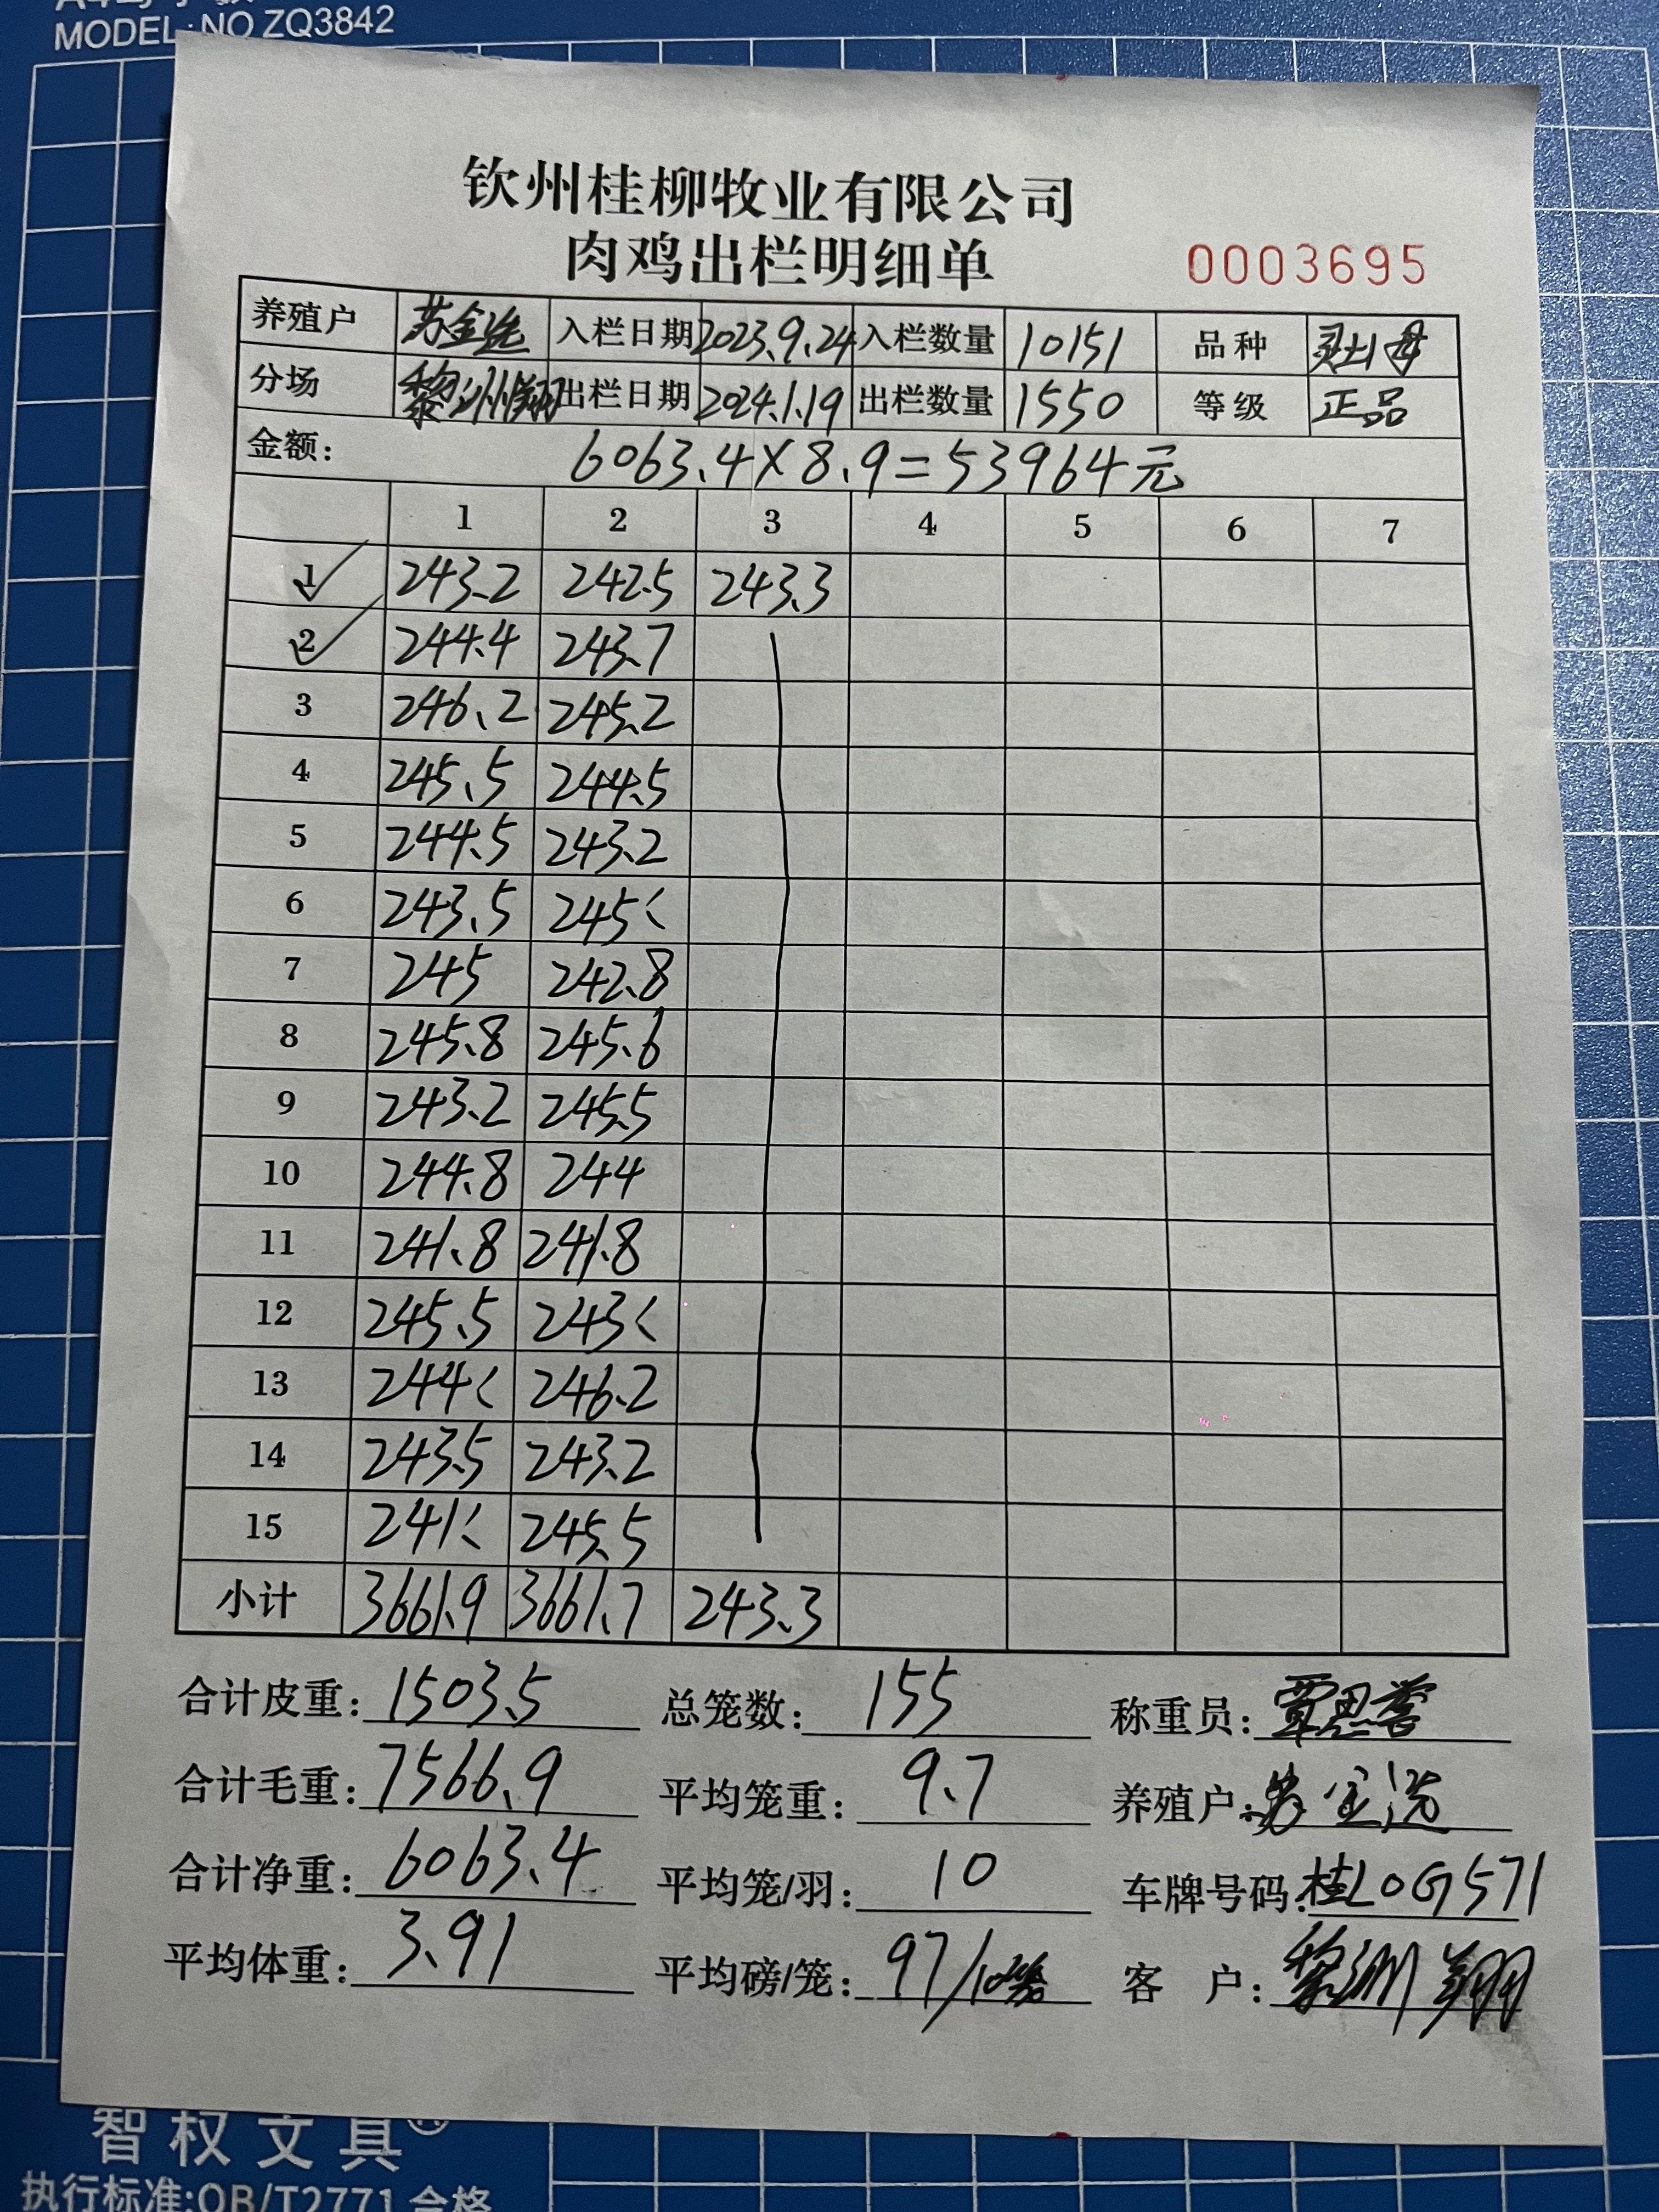 MODEL: NO ZQ3842
钦州桂柳牧业有限公司
肉鸡出栏明细单 0003695
养殖户 苏金选 入栏日期 2023.9.24 入栏数量 10151 品种 灵土母
分场 黎洲翔 出栏日期 2024.1.19 出栏数量 1550 等级 正品
金额: 6063.4×8.9=53964元
1 2 3 4 5 6 7
1 243.2 242.5 243.3
2 244.4 243.7
3 246.2 245.2
4 245.5 244.5
5 244.5 243.2
6 243.5 245<
7 245 242.8
8 245.8 245.6
9 243.2 245.5
10 244.8 244
11 241.8 241.8
12 245.5 243<
13 244< 246.2
14 243.5 243.2
15 241< 245.5
小计 3661.9 3661.7 243.3
合计皮重: 1503.5 总笼数: 155 称重员: 覃思誉
合计毛重: 7566.9 平均笼重: 9.7 养殖户: 苏金选
合计净重: 6063.4 平均笼/羽: 10 车牌号码: 桂L0G571
平均体重: 3.91 平均磅/笼: 97/10 客 户: 黎洲翔
智权文具®
执行标准:QB/T2771 合格